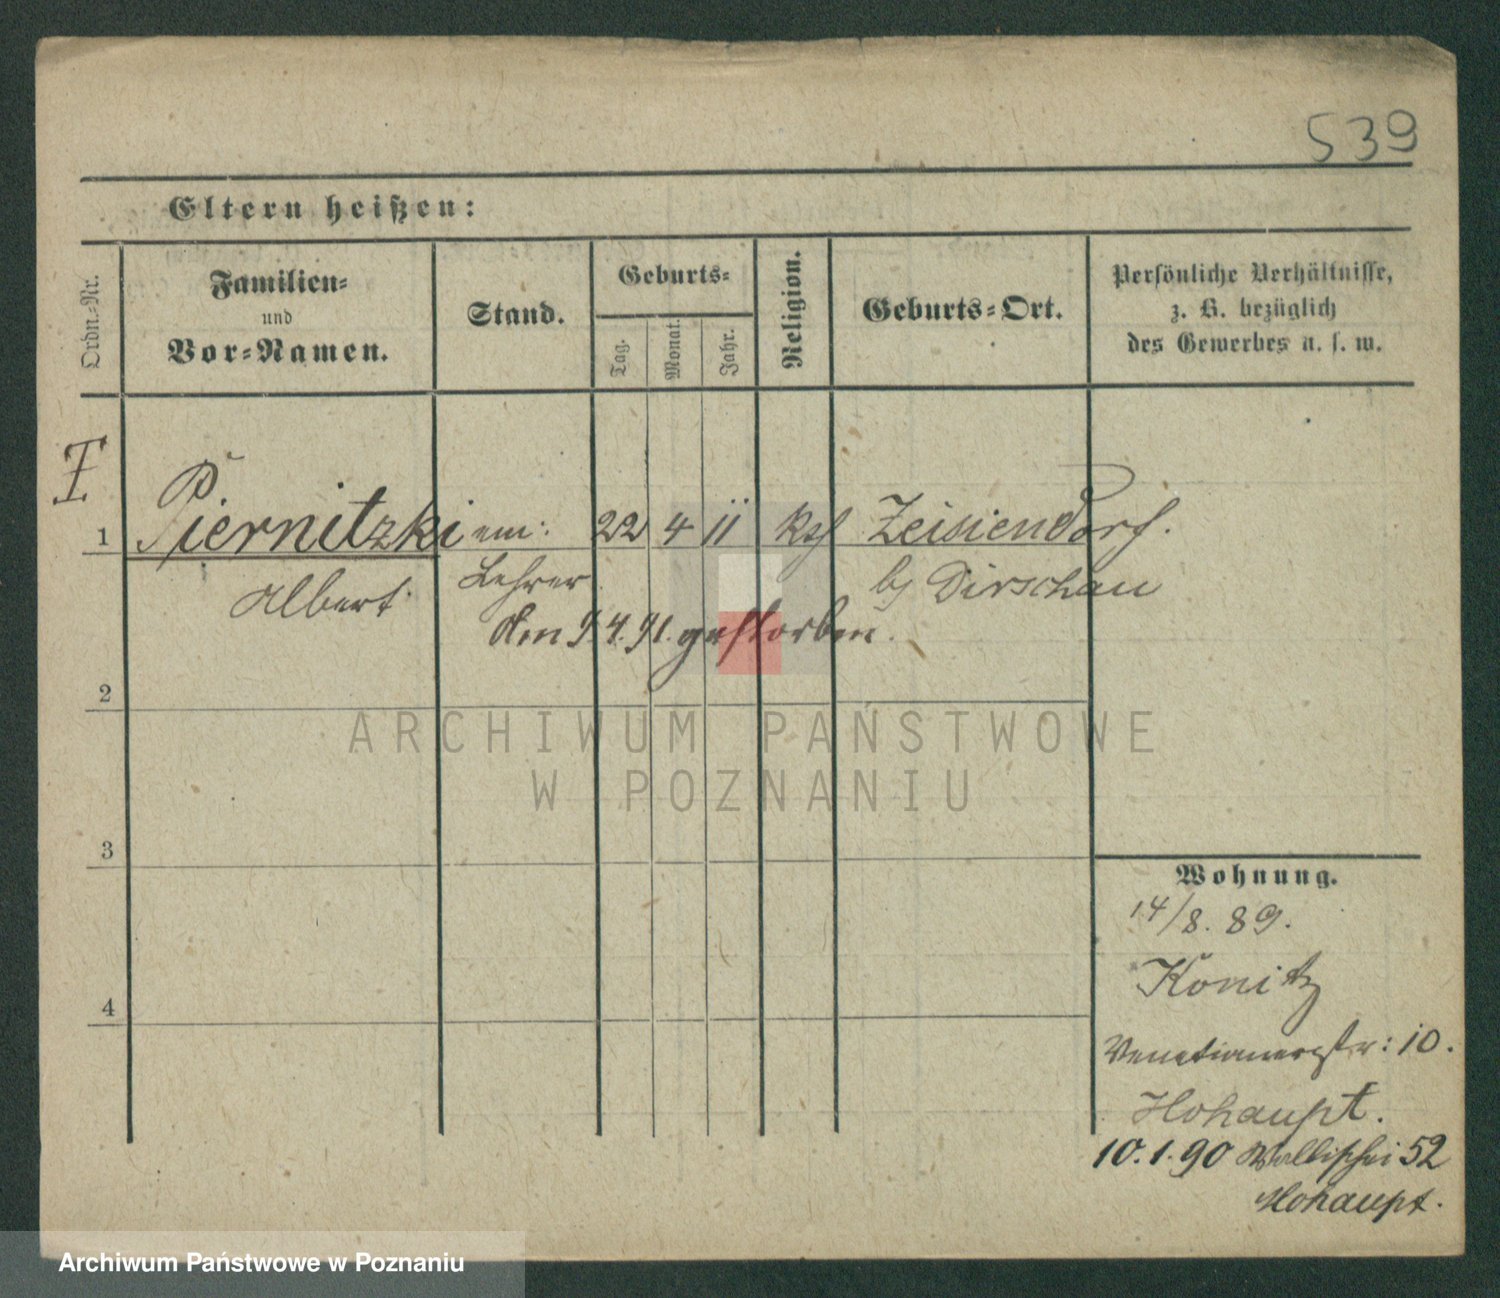 539
Eltern heißen:
Ordn.-Nr.
Familien-
und
Vor-Namen.
Stand.
Geburts-
Tag.
Monat.
Jahr.
Religion.
Geburts-Ort.
Persönliche Verhältnisse,
z. B. bezüglich
des Gewerbes u. s. w.
1
Piernitzki em: 22 4 11 Zeisiendorf.
Albert Lehrer b/ Dirschau
den 9.4.91. gestorben.
2
3
4
Wohnung.
14/8. 89.
Konitz
Venetianerstr: 10.
Hohaupt.
10.1.90 Wallischei 52
Hohaupt.
ARCHIWUM PAŃSTWOWE
W POZNANIU
Archiwum Państwowe w Poznaniu